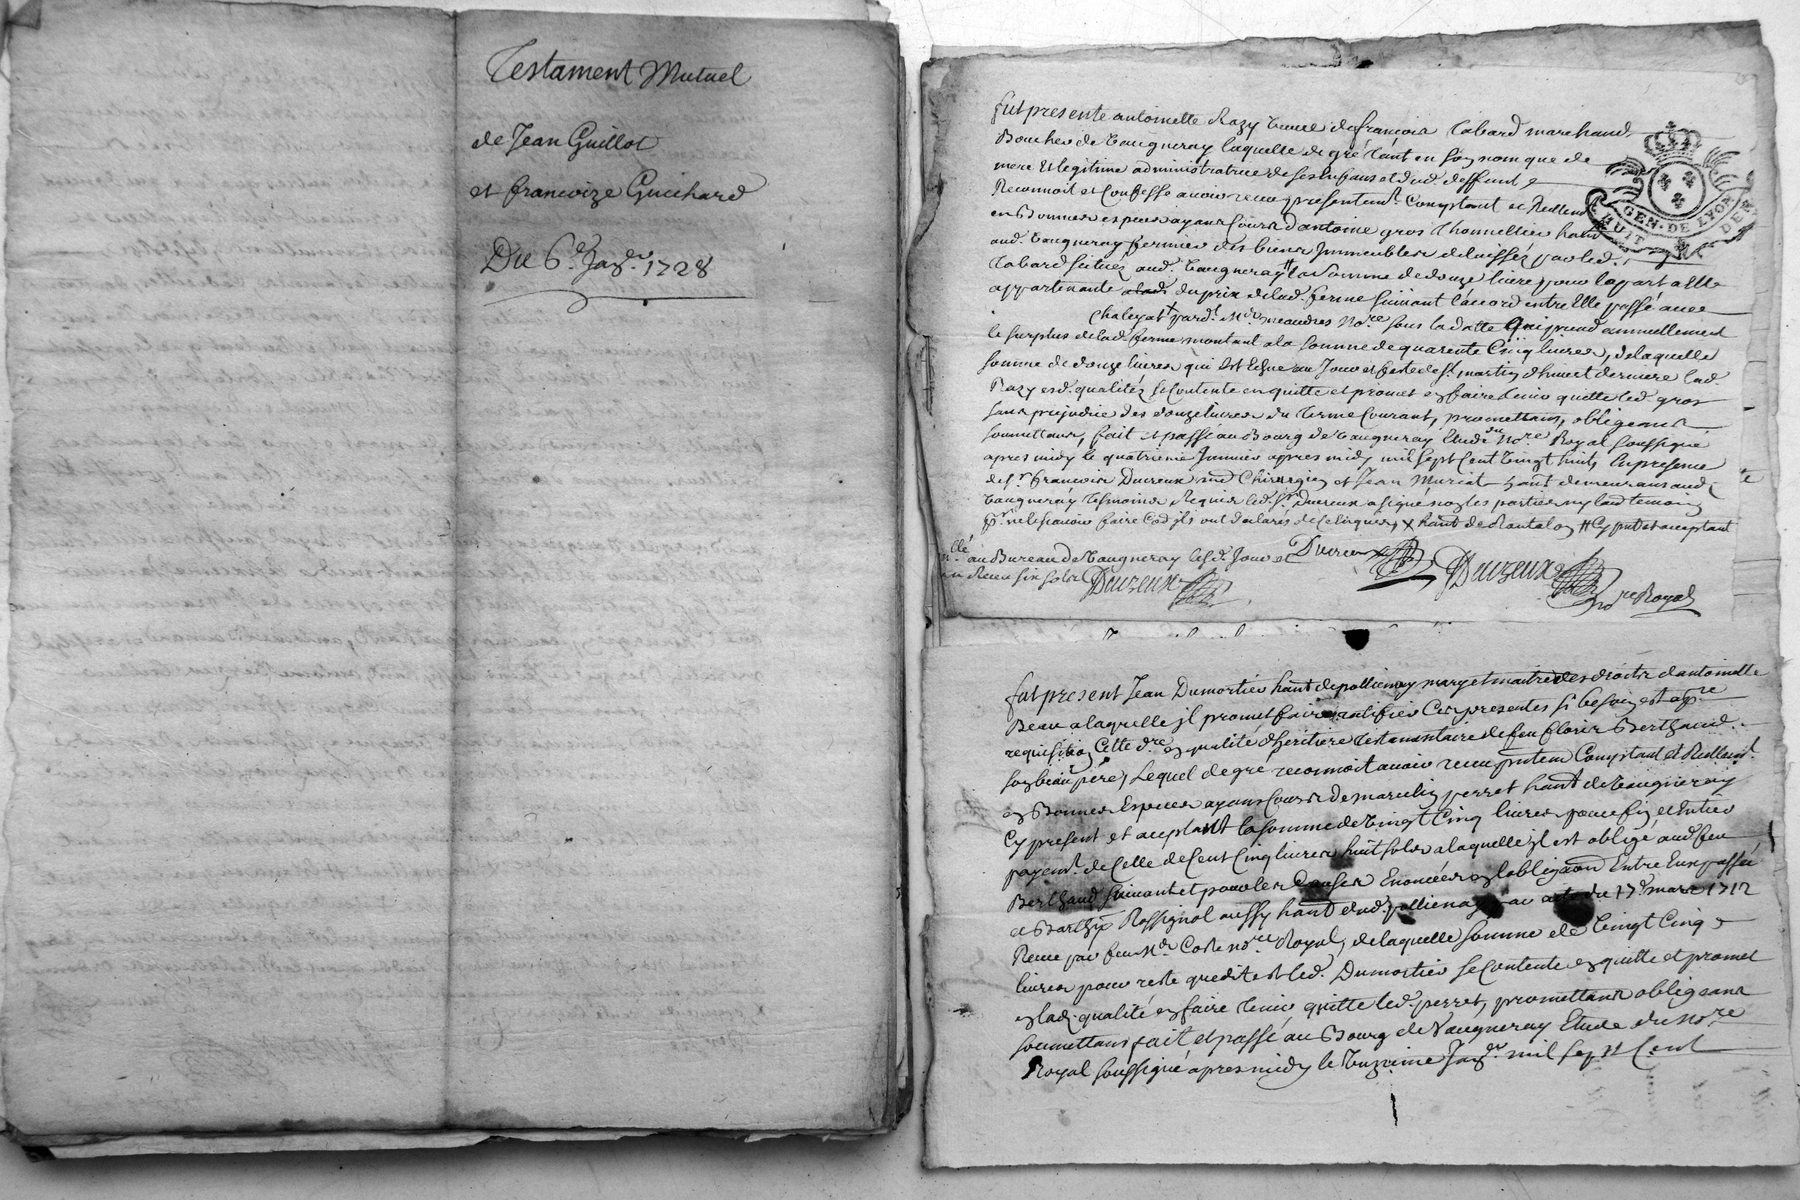 Testament Mutuel
de Jean Guillot
et francoize Guichard
Du 6e Janr. 1728
fut presente antoinette Razy veuve de francois Tabard marchand
Boucher de Vaugneray laquelle de gré tant en son nom que de
mere et legitime administratrice de ses enfans et dud. deffunt
Reconnoit et Confesse avoir receu presentemt. Comptant et Reellemt
en Bonnes especes ayans Cours d'antoine gros Thomellier hant
aud. Vaugneray fermier des biens Immeubles delaissés par led.
Tabard scitués aud. Vaugneray # la Somme de douze livres pour la part a elle
appartenante du prix de lad. ferme suivant l'accord entre elle passé avec
Chalayat + pardt. Me. meaudres Nore. sous la datte qui prend annuellement
le surplus de lad. ferme montant a la somme de quarente Cinq livres, de laquelle
somme de douze livres qui est echue au Jour et feste de St. martin d'hivert derniere lad.
Razy esd. qualités se Contente en quitte et promet en faire tenir quitte led. gros
sans prejudice des douze livres du terme Courant, promettans, obligeans
soumettans, fait et passé au Bourg de Vaugneray Etude du nore. Royal soussigné
apres midy le quatrieme Janvier apres midy mil sept Cent vingt huit, En presence
de Sr. francois Ducreux md Chirurgien et Jean Muriat hant. demeurans aud.
Vaugneray tesmoins Requis led. Sr. Ducreux a signé non les parties ny laud temoin
pr. ne le scavoir faire Cod ils ont declarés de ce enquis x hant de Rontalon # Cy pnt et acceptant
GEN. DE LYON
HUIT DEN
au Bureau de Vaugneray lesd. Jour et
Receu six sols Duvzeux
Ducreux
Duvzeux
nore Royal
fut present Jean Dumortier hant de pollionay mary et maitre des droits d'antoinette
Beau a laquelle il promet faire ratifier Ces presentes si besoin est a pre
requisition Cette dre. en qualité d'heritiere testamentaire de feu fleury Berthaud
son beau pere, Lequel de gré reconnoit avoir receu pntemt Comptant et Reellemt.
en Bonnes Especes ayans Cours de marcelin perret hant de Vaugneray
Cy present et acceptant la somme de vingt Cinq livres pour fin et Entier
payemt. de Celle de Cent Cinq livres huit sols a laquelle il est obligé aud feu
Berthaud suivant et pour les Causes Enoncées en l'obligaon Entre Eux passée
et Barthy Rossignol aussy hant dud. pollionay par acte du 17e. mars 1712
Receu par feu Me. Coste nore Royal, de laquelle somme de vingt Cinq
livres pour reste que dit est led. Dumortier se Contente en quitte et promet
en lad. qualité en faire tenir quitte led. perret, promettans obligeans
soumettans fait et passé au Bourg de Vaugneray Etude du Nore
Royal soussigné apres midy le Janvr. mil sept Cent